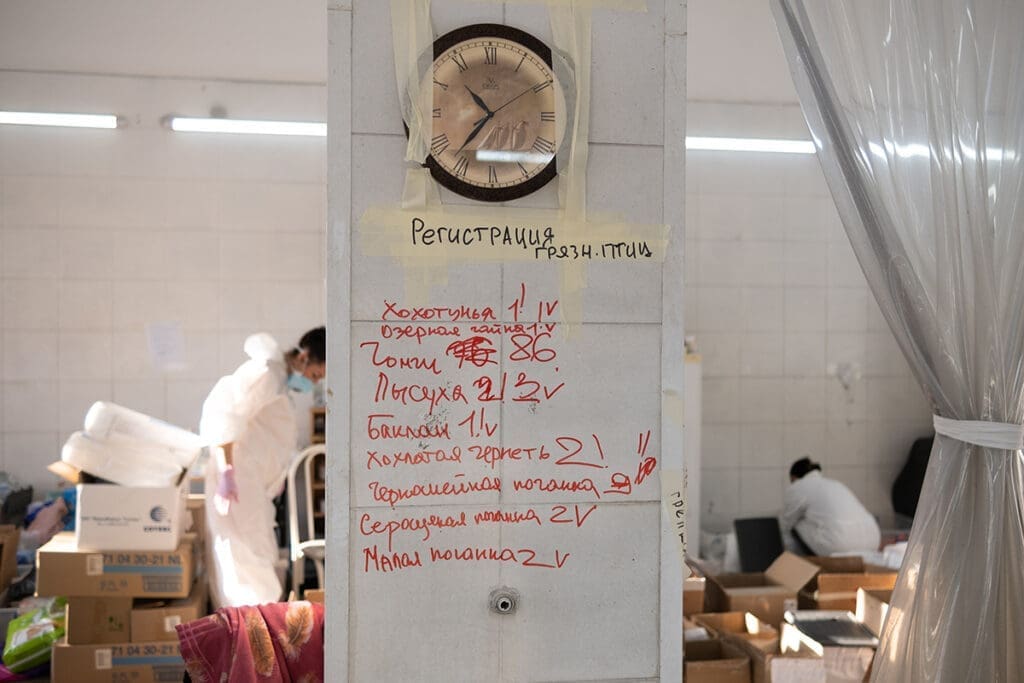 Регистрация
грязн. птиц
Хохотунья 1! 1v
Озерная чайка 1. v
Чомги 86
Лысуха 2/3v
Баклан 1! v
Хохлатая чернеть 2!
Черношейная поганка 9 !!
Серощекая поганка 2v
Малая поганка 2v
71 04 30-21 NL
71 04 30-21